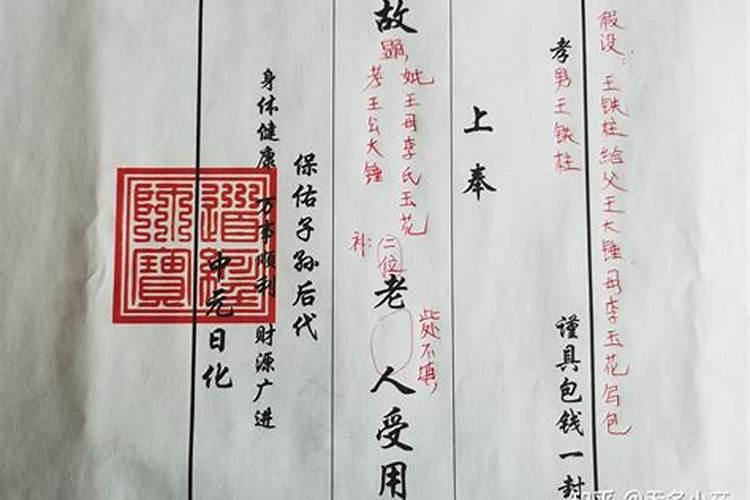 假设：王铁柱给父王大锤母李玉花写包
孝男王铁柱 谨具包钱一封
上奉
故
显，妣王母李氏玉花
考王公大锤
补：二位
老人受用
此处不填，
保佑子孙后代
身体健康 万事顺利 财源广进
中元日化
道經師寶
知乎